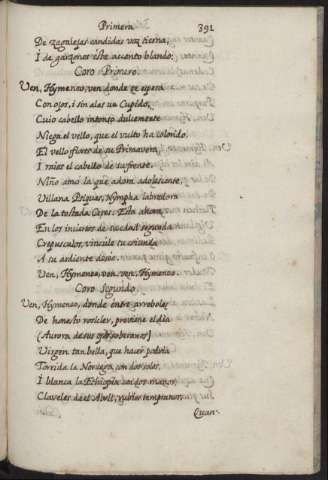 Primera 391
De zagalejas candidas voz tierna,
I de garzones este acento blando:
Coro Primero.
Ven, Hymeneo, ven donde te espera
Con ojos, i sin alas un Cupido,
Cuio cabello intonso dulcemente
Niega el vello, que el vulto ha colorido,
El vello flores de su Primavera,
I raios el cabello de su frente.
Niño amò la que adora adolescente,
Villana Psyques, Nympha labradora
De la tostada Ceres. Esta ahora
En los inciertos de su edad segunda
Crepusculos, vincule tu coiunda
A su ardiente deseo.
Ven, Hymeneo, ven, ven, Hymeneo.
Coro Segundo.
Ven, Hymeneo, donde entre arreboles
De honesto rosicler, previene el dia
(Aurora de sus ojos soberanos)
Virgen tan bella, que hacer podria
Torrida la Noruega con dos soles,
I blanca la Ethiopia con dos manos;
Claveles de el Abril, rubies tempranos,
Quan-